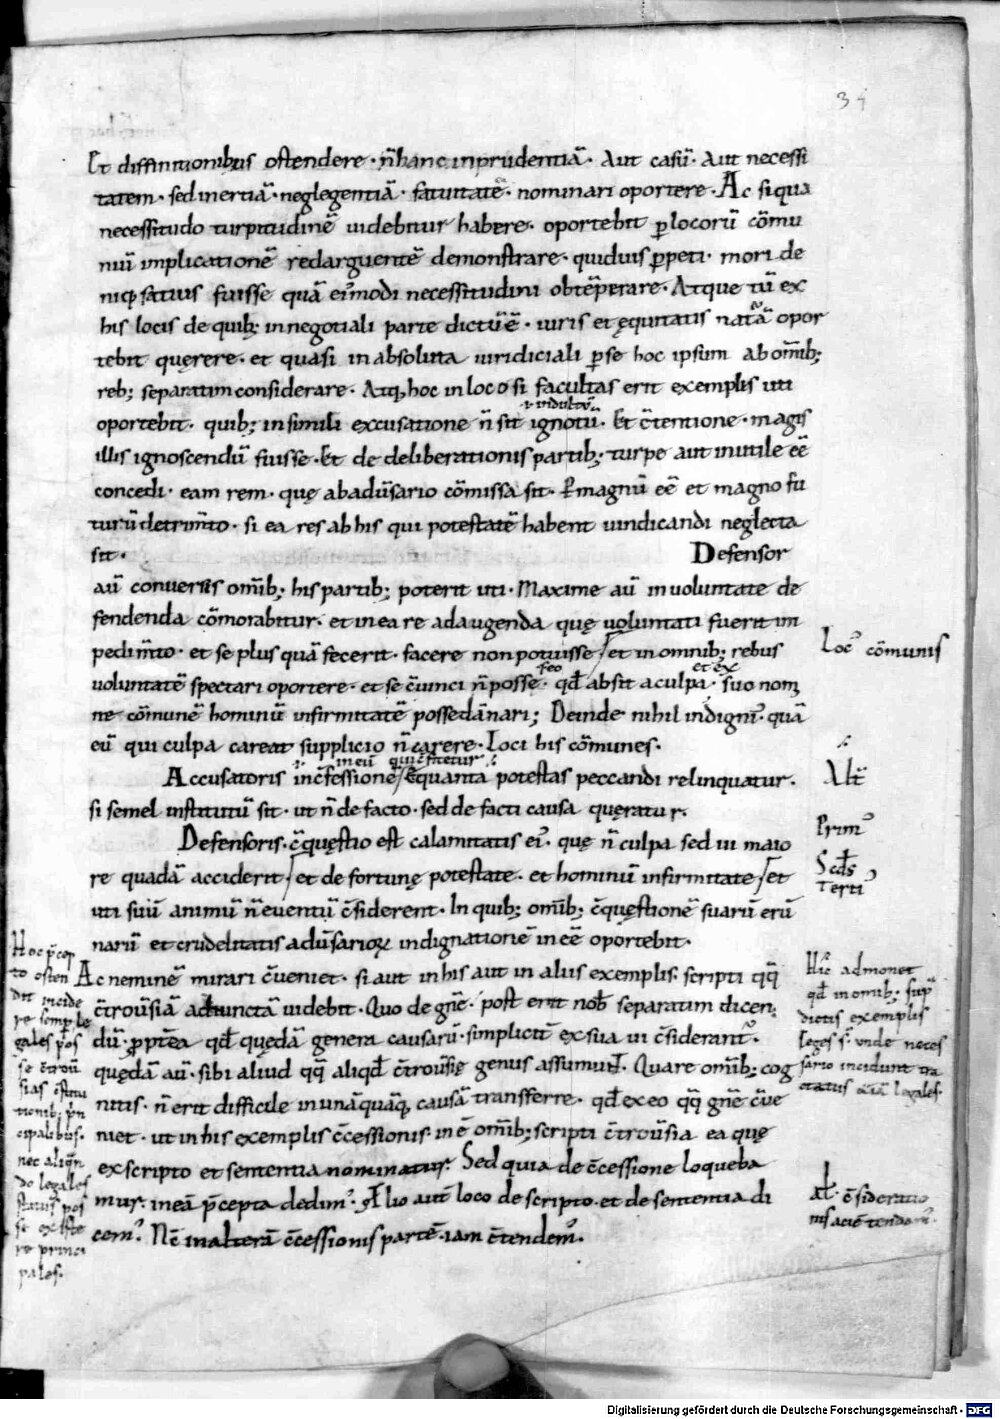 34
Et diffinitionibus ostendere · n̄ hanc inprudentiā · Aut casū · Aut necessi
tatem · sed inertiā · neglegentiā · fatuitatē · nominari oportere · Ac si qua
necessitudo turpitudinē uidebitur habere · oportebit ꝑ locorū cōmu
niū implicationē redarguentē demonstrare · quiduis ꝑpeti · mori de
niqꝫ satius fuisse quā ei᾿modi necessitudini obtēperare · Atque tū ex
his locis de quibꝫ in negotiali parte dictū ē · iuris et ęquitatis natā opor
tebit quęrere · et quasi in absoluta iuridiciali ꝑ se hoc ipsum ab om̄ibꝫ
rebꝫ separatim considerare · Atqꝫ hoc in loco si facultas erit exemplis uti
oportebit · quibꝫ in simili excusatione n̄ sit ignotū · Et c̄tentione · magis
illis ignoscendū fuisse · Et de deliberationis partibꝫ · turpe aut inutile eē
concedi · eam rem · quę ab adūsario cōmissa sit · ꝑmagnū eē et magno fu
turū detrim̄to · si ea res ab his qui potestatē habent uindicandi neglecta
sit · Defensor
aū conuersis om̄ibꝫ his partibꝫ poterit uti · Maxime aū in uoluntate de
fendenda cōmorabitur · et in ea re adaugenda quę uoluntati fuerit im
pedim̄to · et se plus quā fecerit · facere non potuisse / et in omnibꝫ rebus
Loc᾿ cōmunis
uoluntatē spectari oportere · et se c̄uinci n̄ posse · qđ absit a culpa · suo nomi
et ex
ne cōmunē hominū infirmitatē posse dānari ; Deinde nihil indigni᾿ · quā
eū qui culpa careat supplicio n̄ carere · Loci his cōmunes ·
Accusatoris in c̄fessionē / Et quanta potestas peccandi relinquatur ·
in eū qui c̄fitetur
Alt̄
si semel institutū sit · ut n̄ de facto · sed de facti causa quęratur ·
Defensoris · c̄quęstio est calamitatis ei᾿ · quę n̄ culpa sed ui maio
Prim᾿
re quadā acciderit / et de fortunę potestate · et hominū infirmitate / et
Scđs
Terti᾿
uti suū animū n̄ euentū c̄siderent · In quibꝫ om̄ibꝫ c̄quęstionē suarū erū
narū et crudelitatis adūsarioꝝ indignationē in eē oportebit ·
Ac neminē mirari c̄ueniet · si aut in his aut in aliis exemplis · scripti qq̄
c̄troūsiā adiunctā uidebit · Quo de gn̄e · post erit nob̄ separatim dicen
dū · ꝓpt̄ea qđ quędā genera causarū · simplicit̄ ex sua ui c̄siderant᾿ ·
quędā aū · sibi aliud qq̄ aliqđ c̄troūsię genus assumunt · Quare om̄ibꝫ cog
nitis · n̄ erit difficile in unāquāqꝫ causā transferre · qđ ex eo qq̄ gn̄e c̄ue
niet · ut in his exemplis c̄cessionis in ē om̄ibꝫ scripti c̄troūsia ea quę
ex scripto et sententia nominatur · Sed quia de c̄cessione loqueba
mur · in eā p̄cepta dedim᾿ · Alio aut̄ loco de scripto · et de sententia di
cem᾿ · Nc̄ in alterā c̄cessionis partē · iam c̄tendem᾿ ·
Hoc p̄cep
to osten
dit incide
re semp̄ le
gales p̄os
se c̄troū
sias c̄stitu
tionibꝫ p̄n
cipalibus ·
nec aliqn̄
do legales
status pos
se existe
re princi
pales ·
Hic admonet
qđ in omibꝫ sup᾿
dictis exemplis
leges s̄ · unde neces
sario incidunt tra
ctatus etiā legales ·
ał · c̄sideratio
nis acię tendam᾿
Digitalisierung gefördert durch die Deutsche Forschungsgemeinschaft - DFG